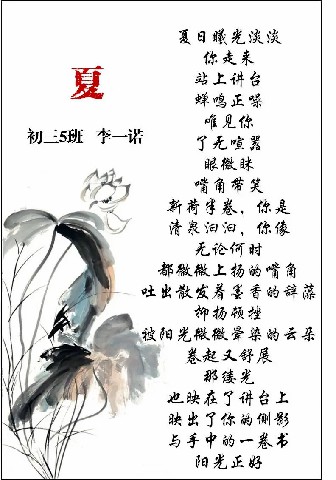 夏
初三5班 李一诺
夏日曦光淡淡
你走来
站上讲台
蝉鸣正噪
唯见你
了无喧嚣
眼微眯
嘴角带笑
新荷半卷，你是
清泉汩汩，你像
无论何时
都微微上扬的嘴角
吐出散发着墨香的辞藻
抑扬顿挫
被阳光微微晕染的云朵
卷起又舒展
那缕光
也映在了讲台上
映出了你的侧影
与手中的一卷书
阳光正好